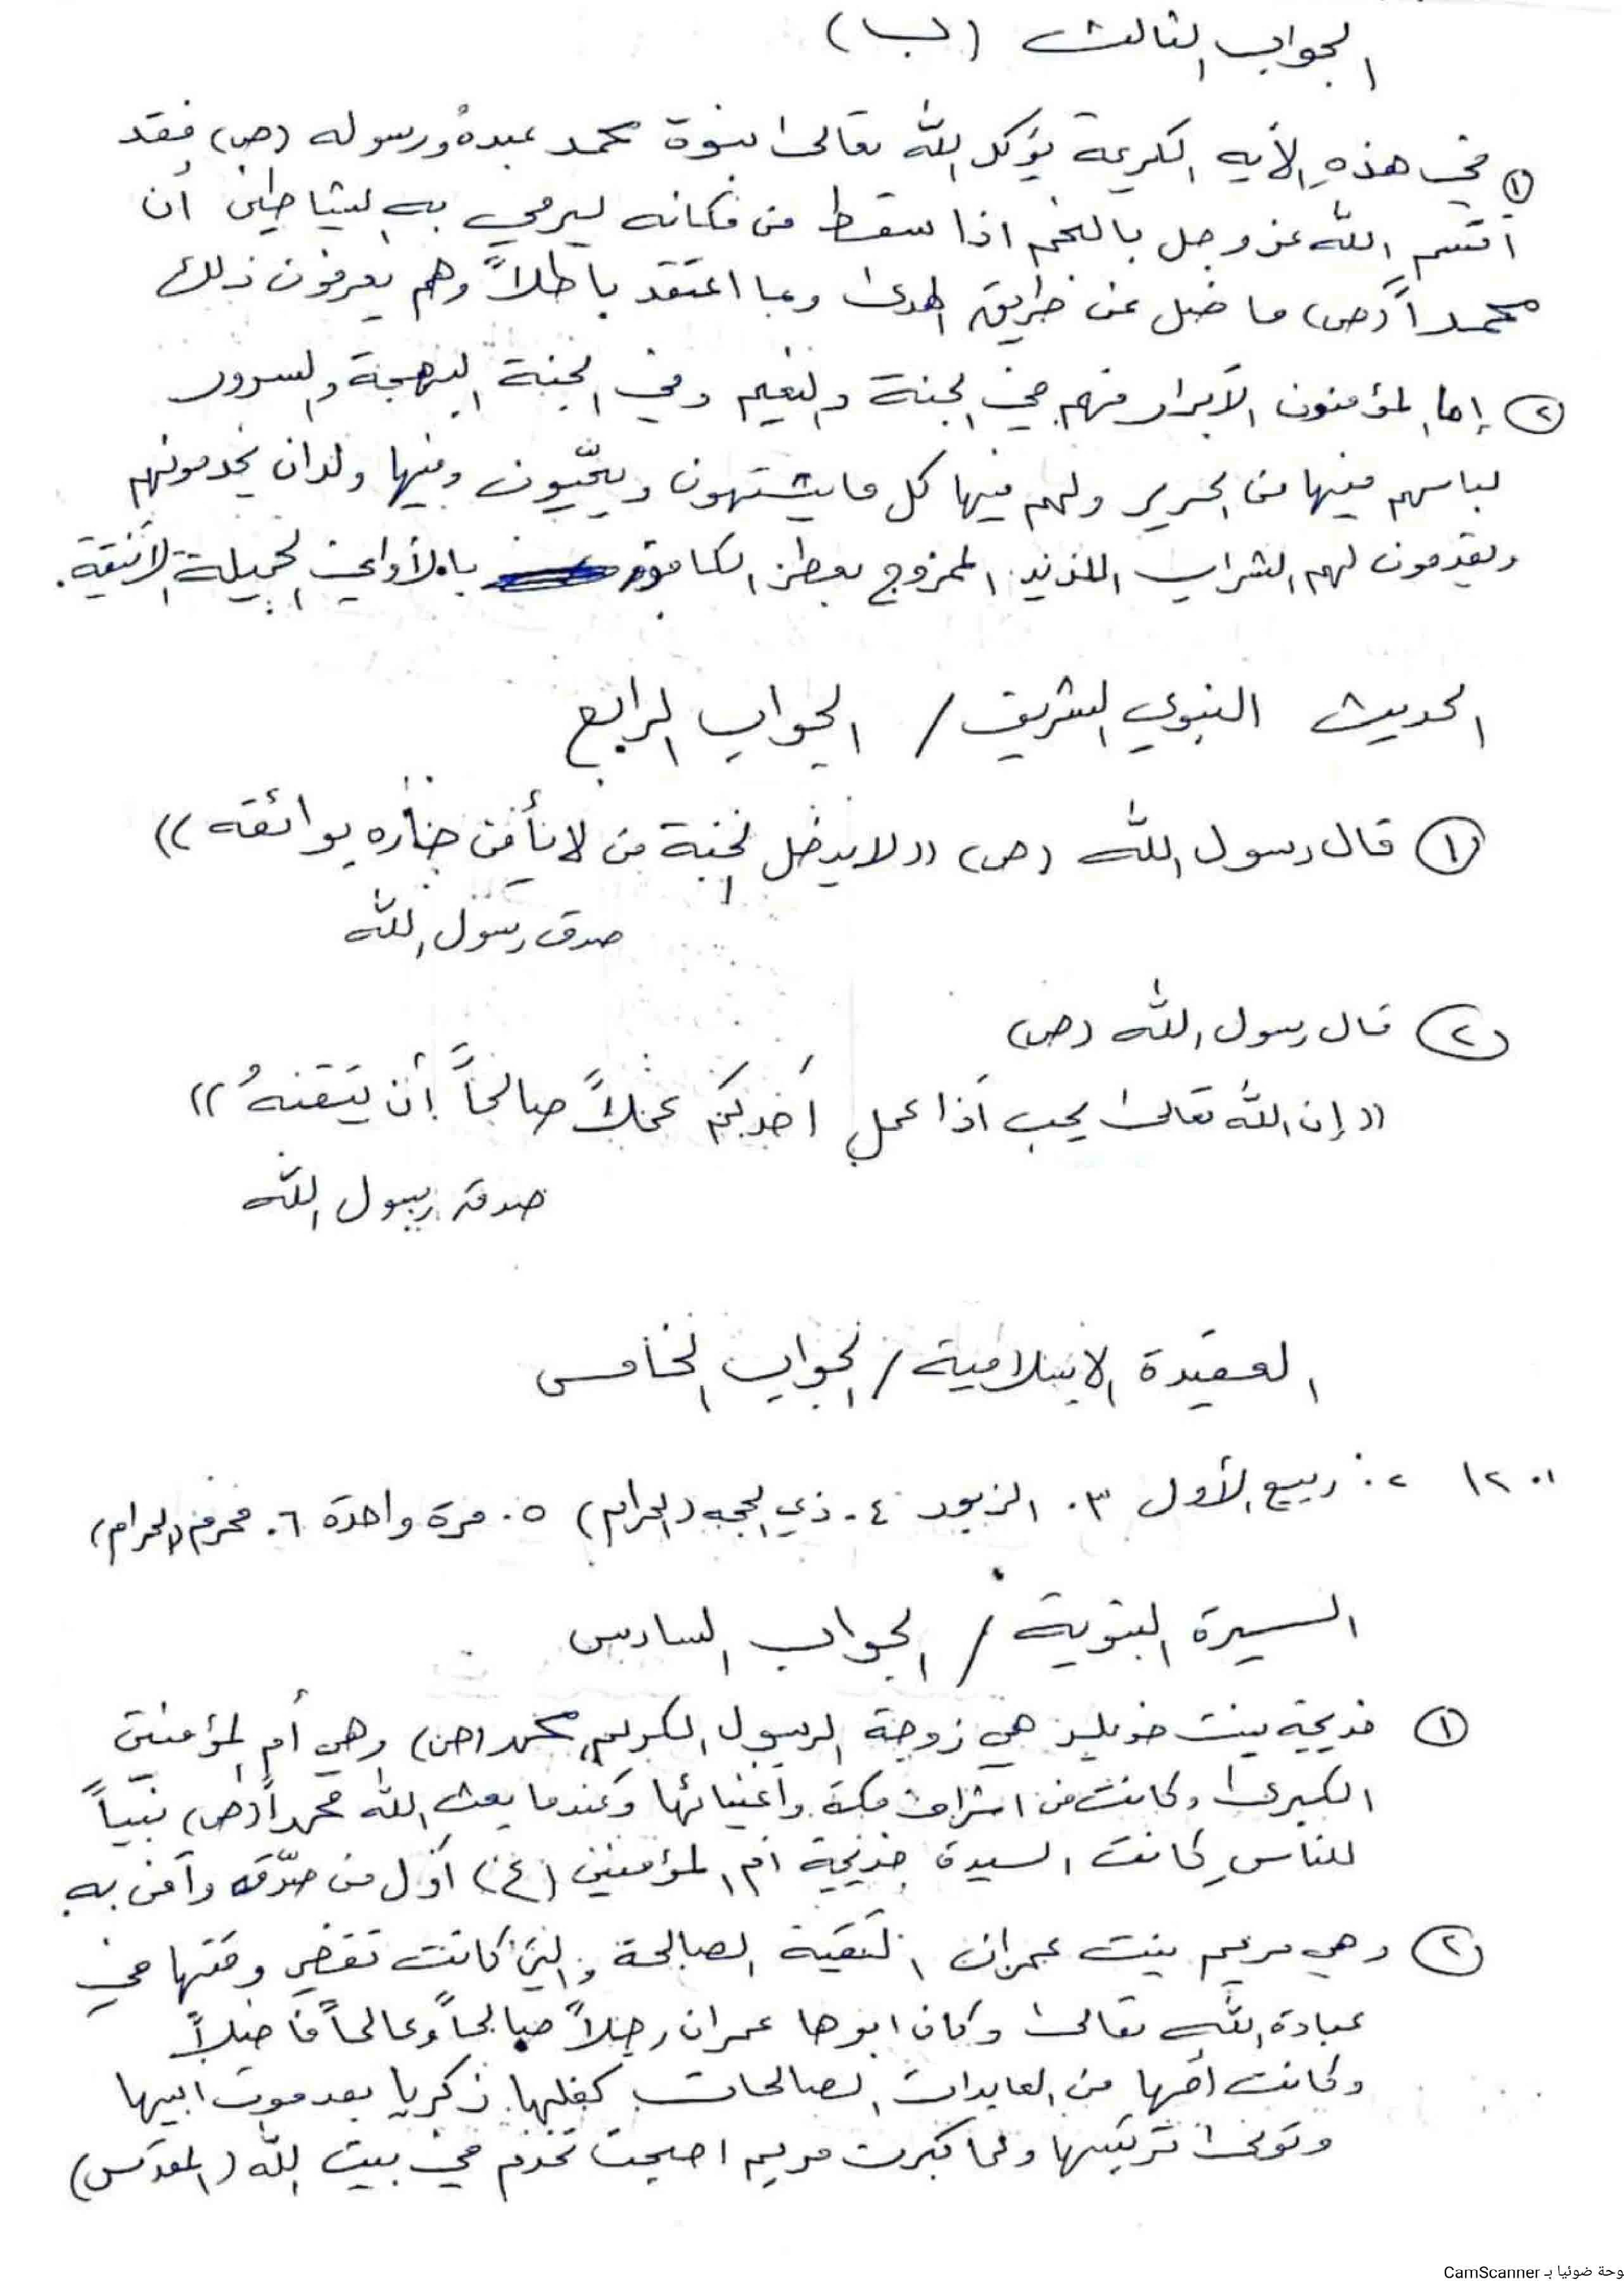 الجواب الثالث (ب)
١ في هذهِ الأيه الكريمة يؤكد الله تعالى نبوة محمد عبدهُ ورسوله (ص) فقد
اقسم الله عز وجل بالنجم اذا سقط من مكانه ليرمي به الشياطين أن
محمداً (ص) ما ضل عن طريق الهدى وما اعتقد باطلاً وهم يعرفون ذلك
٢ إما المؤمنون الأبرار فهم في الجنة والنعيم وفي الجنة البهجة والسرور
لباسهم فيها من الحرير ولهم فيها كل مايشتهون ويحّبون وفيها ولدان يخدمونهم
ويقدمون لهم الشراب اللذيذ الممزوج بعطر الكافور بالأواني الجميلة الانيقة.
الحديث النبوي الشريف / الجواب الرابع
١ قال رسول الله (ص) ((لا يدخل الجنة من لا يأمن جاره بوائقه))
صدق رسول الله
٢ قال رسول الله (ص)
((إن الله تعالى يحب اَذا عمل أحدكم عملاً صالحاً أن يتقنهُ))
صدق رسول الله
العقيدة الاسلامية / الجواب الخامس
١. ١٢ ٢. ربيع الأول ٣. الزبور ٤. ذي الحجه (الحرام) ٥. مرة واحدة ٦. محرم (الحرام)
السيرة النبوية / الجواب السادس
١ خديجة بنت خويلد هي زوجة الرسول الكريم محمد (ص) وهي أم المؤمنين
الكبرى وكانت من اشراف مكة وأغنيائها وعندما بعث الله محمداً (ص) نبياً
للناس كانت السيدة خديجة ام المؤمنين (ع) اول من صدّقه وآمن به
٢ وهي مريم بنت عمران التقية الصالحة والتي كانت تقضي وقتها في
عبادة الله تعالى وكان ابوها عمران رجلاً صالحاً وعالماً فاضلاً
وكانت أمها من العابدات الصالحات كفلها زكريا بعد موت ابيها
وتولى تربيتها ولما كبرت مريم اصبحت تخدم في بيت الله (المقدس)
وحة ضوئيا بـ CamScanner